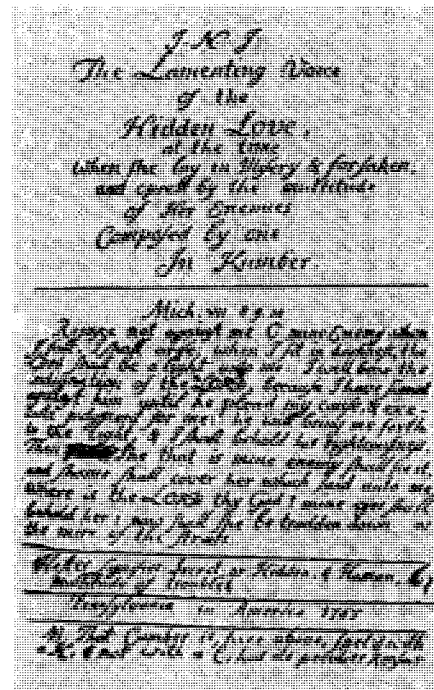 I. N. I.
The Lamenting Voice
of the
Hidden Love,
at the time
When She lay in Misery & forsaken,
and oprest by the multitude
of Her Enemies
Composed by one
In Kumber.
Mich. VII 8. 9. 10
Rejoyce not against me O mine Enemy when
I fall, I shall arise, when I sit in darkness, the
Lord shall be a light unto me. I will bear the
indignation of the LORD because I have sinned
against him until he plead my cause, & exe-
cute judgment for me: he will bring me forth
to the light, & I shall behold his righteousness.
Then she that is mine enemy shall see it,
and shame shall cover her which said unto me
where is the LORD thy God? mine eyes shall
behold her: now shall she be trodden down as
the mire of the streets.
signifies secret or Hidden, &
of troubles
Pensylvania in America 1705
That Cumber is, here above, spel'd with
a K, & not with a C, has its peculiar Reason